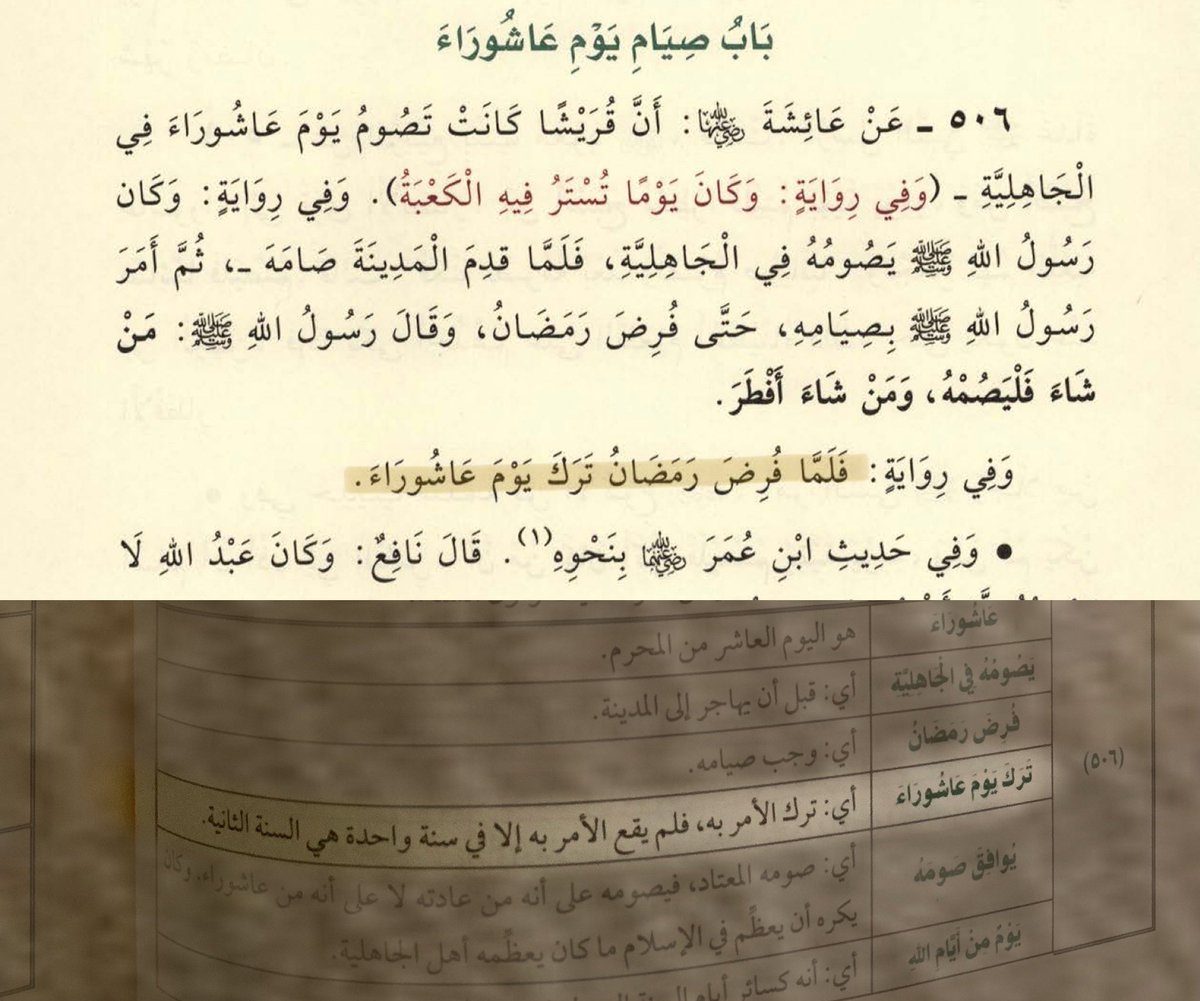 بَابُ صِيَامِ يَوْمِ عَاشُورَاءَ
٥٠٦ ـ عَنْ عَائِشَةَ رضي الله عنها: أَنَّ قُرَيْشًا كَانَتْ تَصُومُ يَوْمَ عَاشُورَاءَ فِي
الْجَاهِلِيَّةِ ـ (وَفِي رِوَايَةٍ: وَكَانَ يَوْمًا تُسْتَرُ فِيهِ الْكَعْبَةُ). وَفِي رِوَايَةٍ: وَكَان
رَسُولُ اللهِ ﷺ يَصُومُهُ فِي الْجَاهِلِيَّةِ، فَلَمَّا قدِمَ الْمَدِينَةَ صَامَهَ ـ، ثُمَّ أَمَرَ
رَسُولُ اللهِ ﷺ بِصِيَامِهِ، حَتَّى فُرِضَ رَمَضَانُ، وَقَالَ رَسُولُ اللهِ ﷺ: مَنْ
شَاءَ فَلْيَصُمْهُ، وَمَنْ شَاءَ أَفْطَرَ.
وَفِي رِوَايَةٍ: فَلَمَّا فُرِضَ رَمَضَانُ تَرَكَ يَوْمَ عَاشُورَاءَ.
• وَفِي حَدِيثِ ابْنِ عُمَرَ رضي الله عنهما بِنَحْوِهِ(١). قَالَ نَافِعٌ: وَكَانَ عَبْدُ اللهِ لَا
عَاشُورَاءَ هو اليوم العاشر من المحرم.
يَصُومُهُ فِي الْجَاهِلِيَّةِ أي: قبل أن يهاجر إلى المدينة.
فُرِضَ رَمَضَانُ أي: وجب صيامه.
(٥٠٦)
تَرَكَ يَوْمَ عَاشُورَاءَ أي: ترك الأمر به، فلم يقع الأمر به إلا في سنة واحدة هي السنة الثانية.
يُوافِقَ صَومَهُ أي: صومه المعتاد، فيصومه على أنه من عادته لا على أنه من عاشوراء. وكان
يكره أن يعظِّم في الإسلام ما كان يعظِّمه أهل الجاهلية.
يَوْمٌ مِنْ أَيَّامِ اللهِ أي: أنه كسائر أيام